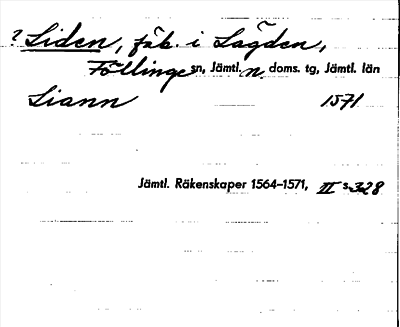 ? Liden, fäb. i Lågden,
Föllinge sn, Jämtl. n. doms. tg, Jämtl. län
Liann 1571
Jämtl. Räkenskaper 1564–1571, II s. 328